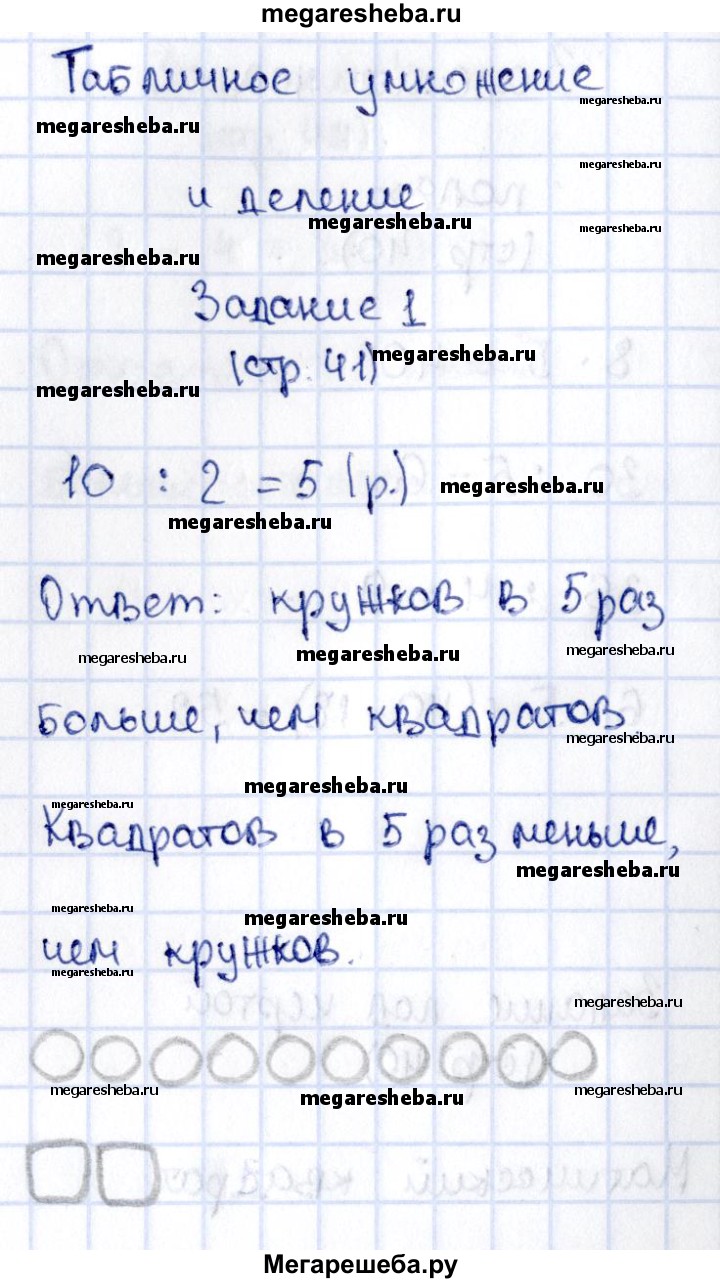 megaresheba.ru
Табличное умножение
megaresheba.ru
megaresheba.ru
megaresheba.ru
и деление
megaresheba.ru
megaresheba.ru
megaresheba.ru
Задание 1
(стр. 41)
megaresheba.ru
megaresheba.ru
10 : 2 = 5 (р.)
megaresheba.ru
megaresheba.ru
Ответ: кружков в 5 раз
megaresheba.ru
megaresheba.ru
megaresheba.ru
больше, чем квадратов
megaresheba.ru
megaresheba.ru
megaresheba.ru
Квадратов в 5 раз меньше,
megaresheba.ru
megaresheba.ru
megaresheba.ru
чем кружков.
megaresheba.ru
megaresheba.ru
megaresheba.ru
megaresheba.ru
megaresheba.ru
Мегарешеба.ру